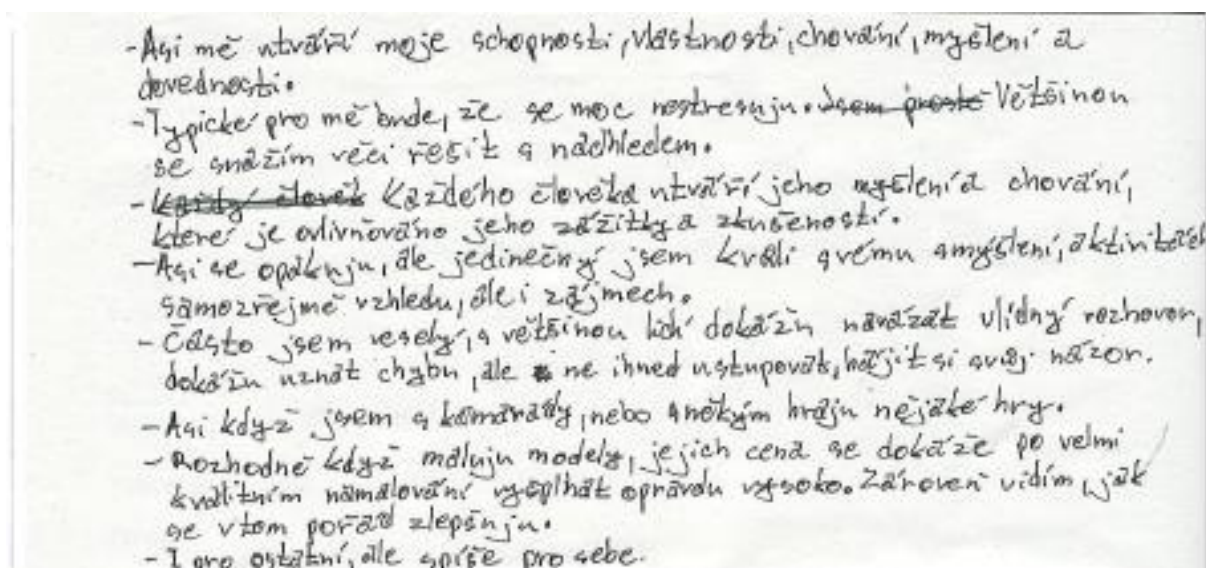 - Asi mě utváří moje schopnosti, vlastnosti, chování, myšlení a
dovednosti.
- Typické pro mě bude, že se moc nestresuju. Jsem prostě Většinou
se snažím věci řešit s nadhledem.
- Každý člověk Každého člověka utváří jeho myšlení a chování,
které je ovlivňováno jeho zážitky a zkušeností.
- Asi se opakuju, ale jedinečný jsem kvůli svému smýšlení, aktivitách
samozřejmě vzhledu, ale i zájmech.
- Často jsem veselý, s většinou lidí dokážu navázat vlídný rozhovor,
dokážu uznat chybu, ale ne ihned ustupovat, hájit si svůj názor.
- Asi když jsem s kamarády, nebo s někým hraju nějaké hry.
- Rozhodně když maluju modely, jejich cena se dokáže po velmi
kvalitním namalování vyšplhat opravdu vysoko. Zároveň vidím, jak
se v tom pořád zlepšuju.
- I pro ostatní, ale spíše pro sebe.